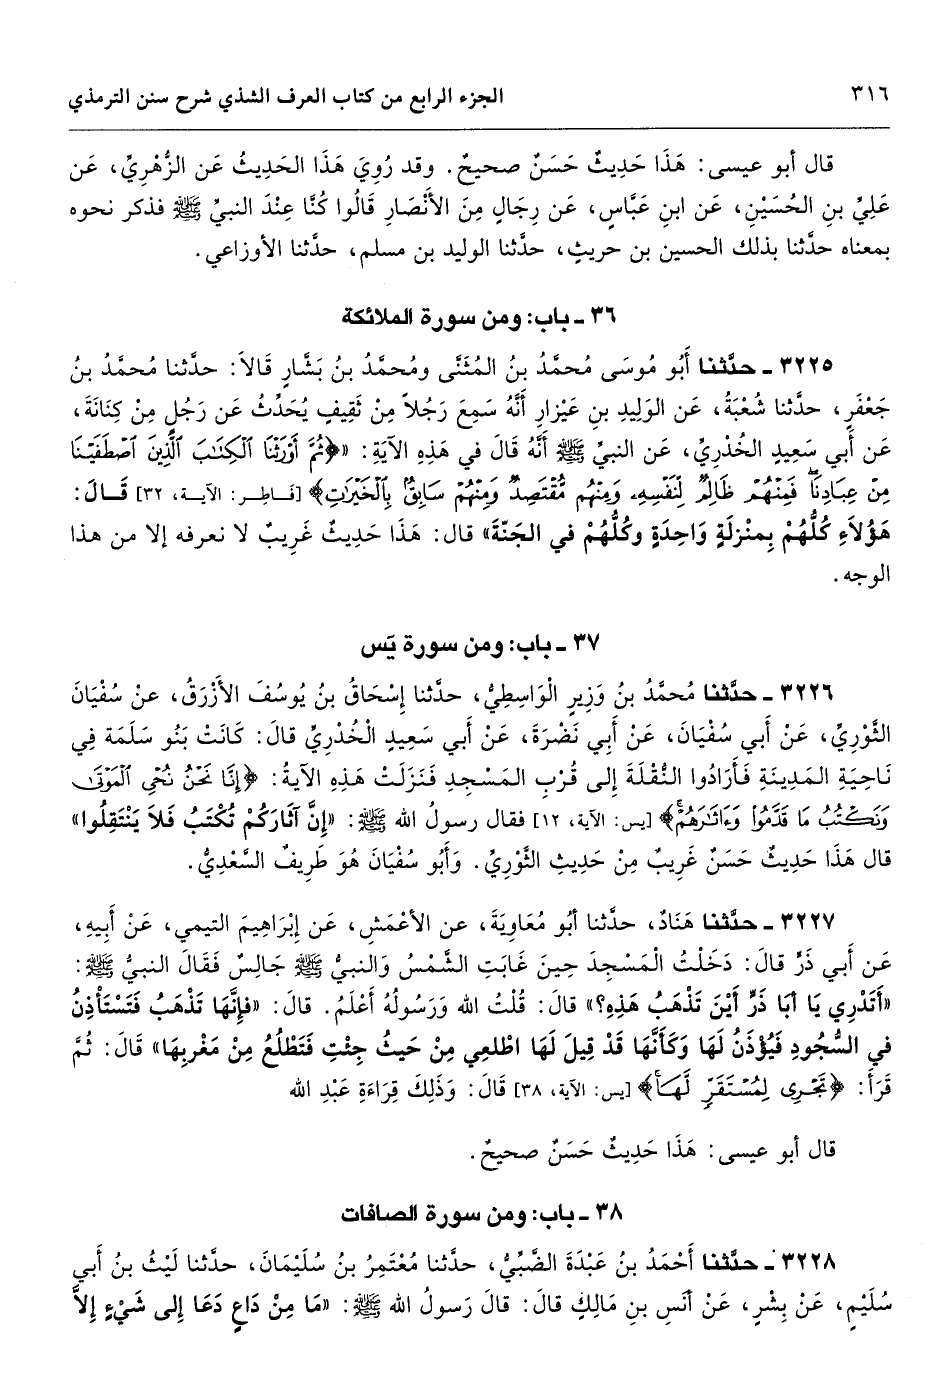 ٣١٦ الجزء الرابع من كتاب العرف الشذي شرح سنن الترمذي
قال أبو عيسى: هَذَا حَدِيثٌ حَسَنٌ صحيحٌ. وقد رُوِيَ هَذَا الحَدِيثُ عَن الزُّهْرِيِّ، عَن
عَلِيِّ بنِ الحُسَيْنِ، عَن ابنِ عَبَّاسٍ، عَن رِجَالٍ مِنَ الأَنْصَارِ قَالُوا كُنَّا عِنْدَ النبيِّ ﷺ فذكر نحوه
بمعناه حدَّثنا بذلك الحسين بن حريثٍ، حدَّثنا الوليد بن مسلم، حدَّثنا الأوزاعي.
٣٦ ـ باب: ومن سورة الملائكة
٣٢٢٥ ـ حدَّثنا أَبُو مُوسَى مُحمَّدُ بنُ المُثَنَّى ومُحمَّدُ بنُ بَشَّارٍ قَالاَ: حدَّثنا مُحمَّدُ بنُ
جَعْفَرٍ، حدَّثنا شُعْبَةُ، عَن الوَلِيدِ بنِ عَيْزارِ أَنَّهُ سَمِعَ رَجُلاً مِنْ ثَقِيفٍ يُحَدِّثُ عَن رَجُلٍ مِنْ كِنَانَةَ،
عَن أَبي سَعِيدٍ الخُدْرِيِّ، عَن النبيِّ ﷺ أَنَّهُ قَالَ في هَذِهِ الآيَةِ: «﴿ثُمَّ أَوْرَثْنَا ٱلْكِتَٰبَ ٱلَّذِينَ ٱصْطَفَيْنَا
مِنْ عِبَادِنَاۖ فَمِنْهُمْ ظَالِمٌ لِّنَفْسِهِۦ وَمِنْهُم مُّقْتَصِدٌ وَمِنْهُمْ سَابِقٌۢ بِٱلْخَيْرَٰتِ﴾ [فاطر: الآية، ٣٢] قَالَ:
هَؤُلاَءِ كُلُّهُمْ بِمنْزِلَةٍ وَاحِدَةٍ وكُلُّهُمْ في الجَنَّةِ» قال: هَذَا حَدِيثٌ غَرِيبٌ لا نعرفه إلا من هذا
الوجه.
٣٧ ـ باب: ومن سورة يَس
٣٢٢٦ ـ حدَّثنا مُحمَّدُ بنُ وَزِيرٍ الْوَاسِطِيُّ، حدَّثنا إِسْحَاقُ بنُ يُوسُفَ الأَزْرَقُ، عنْ سُفْيَانَ
الثَّوْرِيِّ، عَنْ أَبي سُفْيَانَ، عَنْ أَبِي نَضْرَةَ، عَنْ أَبي سَعِيدٍ الْخُدْرِيِّ قالَ: كَانَتْ بَنُو سَلَمَةَ فِي
نَاحِيَةِ المَدِينَةِ فَأَرَادُوا النُّقْلَةَ إلى قُرْبِ المَسْجِدِ فَنَزَلَتْ هَذِهِ الآيَةُ: ﴿إِنَّا نَحْنُ نُحْيِ ٱلْمَوْتَىٰ
وَنَكْتُبُ مَا قَدَّمُوا۟ وَءَاثَٰرَهُمْۚ﴾ [يس: الآية، ١٢] فقال رسولُ الله ﷺ: «إِنَّ آثَارَكُمْ تُكْتَبُ فَلاَ يَنْتَقِلُوا»
قال هَذَا حَدِيثٌ حَسَنٌ غَرِيبٌ مِنْ حَدِيثِ الثَّوْرِيِّ. وَأَبُو سُفْيَانَ هُوَ طَرِيفٌ السَّعْدِيُّ.
٣٢٢٧ ـ حدَّثنا هَنَادٌ، حدَّثنا أبُو مُعَاوِيَةَ، عن الأعْمَشِ، عَن إبْرَاهِيمَ التيمي، عَنْ أَبِيهِ،
عَن أَبي ذَرٍّ قالَ: دَخَلْتُ الْمَسْجِدَ حِينَ غَابَتِ الشَّمْسُ وَالنبيُّ ﷺ جَالِسٌ فَقَالَ النبيُّ ﷺ:
«أَتَدْرِي يَا أبَا ذَرٍّ أَيْنَ تَذْهَبُ هَذِهِ؟» قالَ: قُلْتُ الله وَرَسُولُهُ أَعْلَمُ. قالَ: «فإِنَّهَا تَذْهَبُ فَتَسْتَأْذِنُ
في السُّجُودِ فَيُؤْذَنُ لَهَا وَكَأَنَّهَا قَدْ قِيلَ لَهَا اطْلعِي مِنْ حَيثُ جِئْتِ فَتَطْلُعُ مِنْ مَغْرِبِهَا» قَالَ: ثُمَّ
قَرَأَ: ﴿تَجْرِى لِمُسْتَقَرٍّ لَّهَا﴾ [يس: الآية، ٣٨] قَالَ: وَذَلِكَ قِرَاءَةِ عَبْدِ الله
قال أبو عيسى: هَذَا حَدِيثٌ حَسَنٌ صحيحٌ.
٣٨ ـ باب: ومن سورة الصافات
٣٢٢٨ ـ حدَّثنا أَحْمَدُ بنُ عَبْدَةَ الضَّبِّيُّ، حدَّثنا مُعْتَمِرُ بنُ سُلَيْمَانَ، حدَّثنا لَيْثُ بنُ أبي
سُلَيْمٍ، عَنْ بِشْرٍ، عَنْ أَنَسِ بنِ مَالِكٍ قالَ: قالَ رَسولُ الله ﷺ: «مَا مِنْ دَاعٍ دَعَا إلى شَيْءٍ إلاَّ